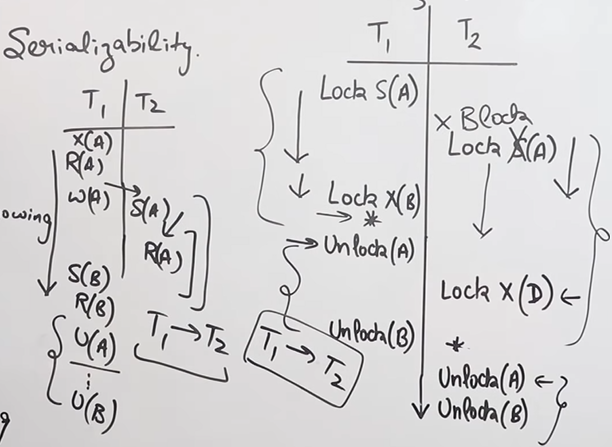 Serializability.
T1 T2
X(A)
R(A)
W(A)
S(A)
R(A)
owing
S(B)
R(B)
U(A)
U(B)
T1 → T2
T1 T2
Lock S(A)
X Block
Lock (A)
Lock X(B)
→ *
→ Unlock(A)
Lock X(D) ←
Unlock(B)
*
T1 → T2
Unlock(A) ←
Unlock(B)